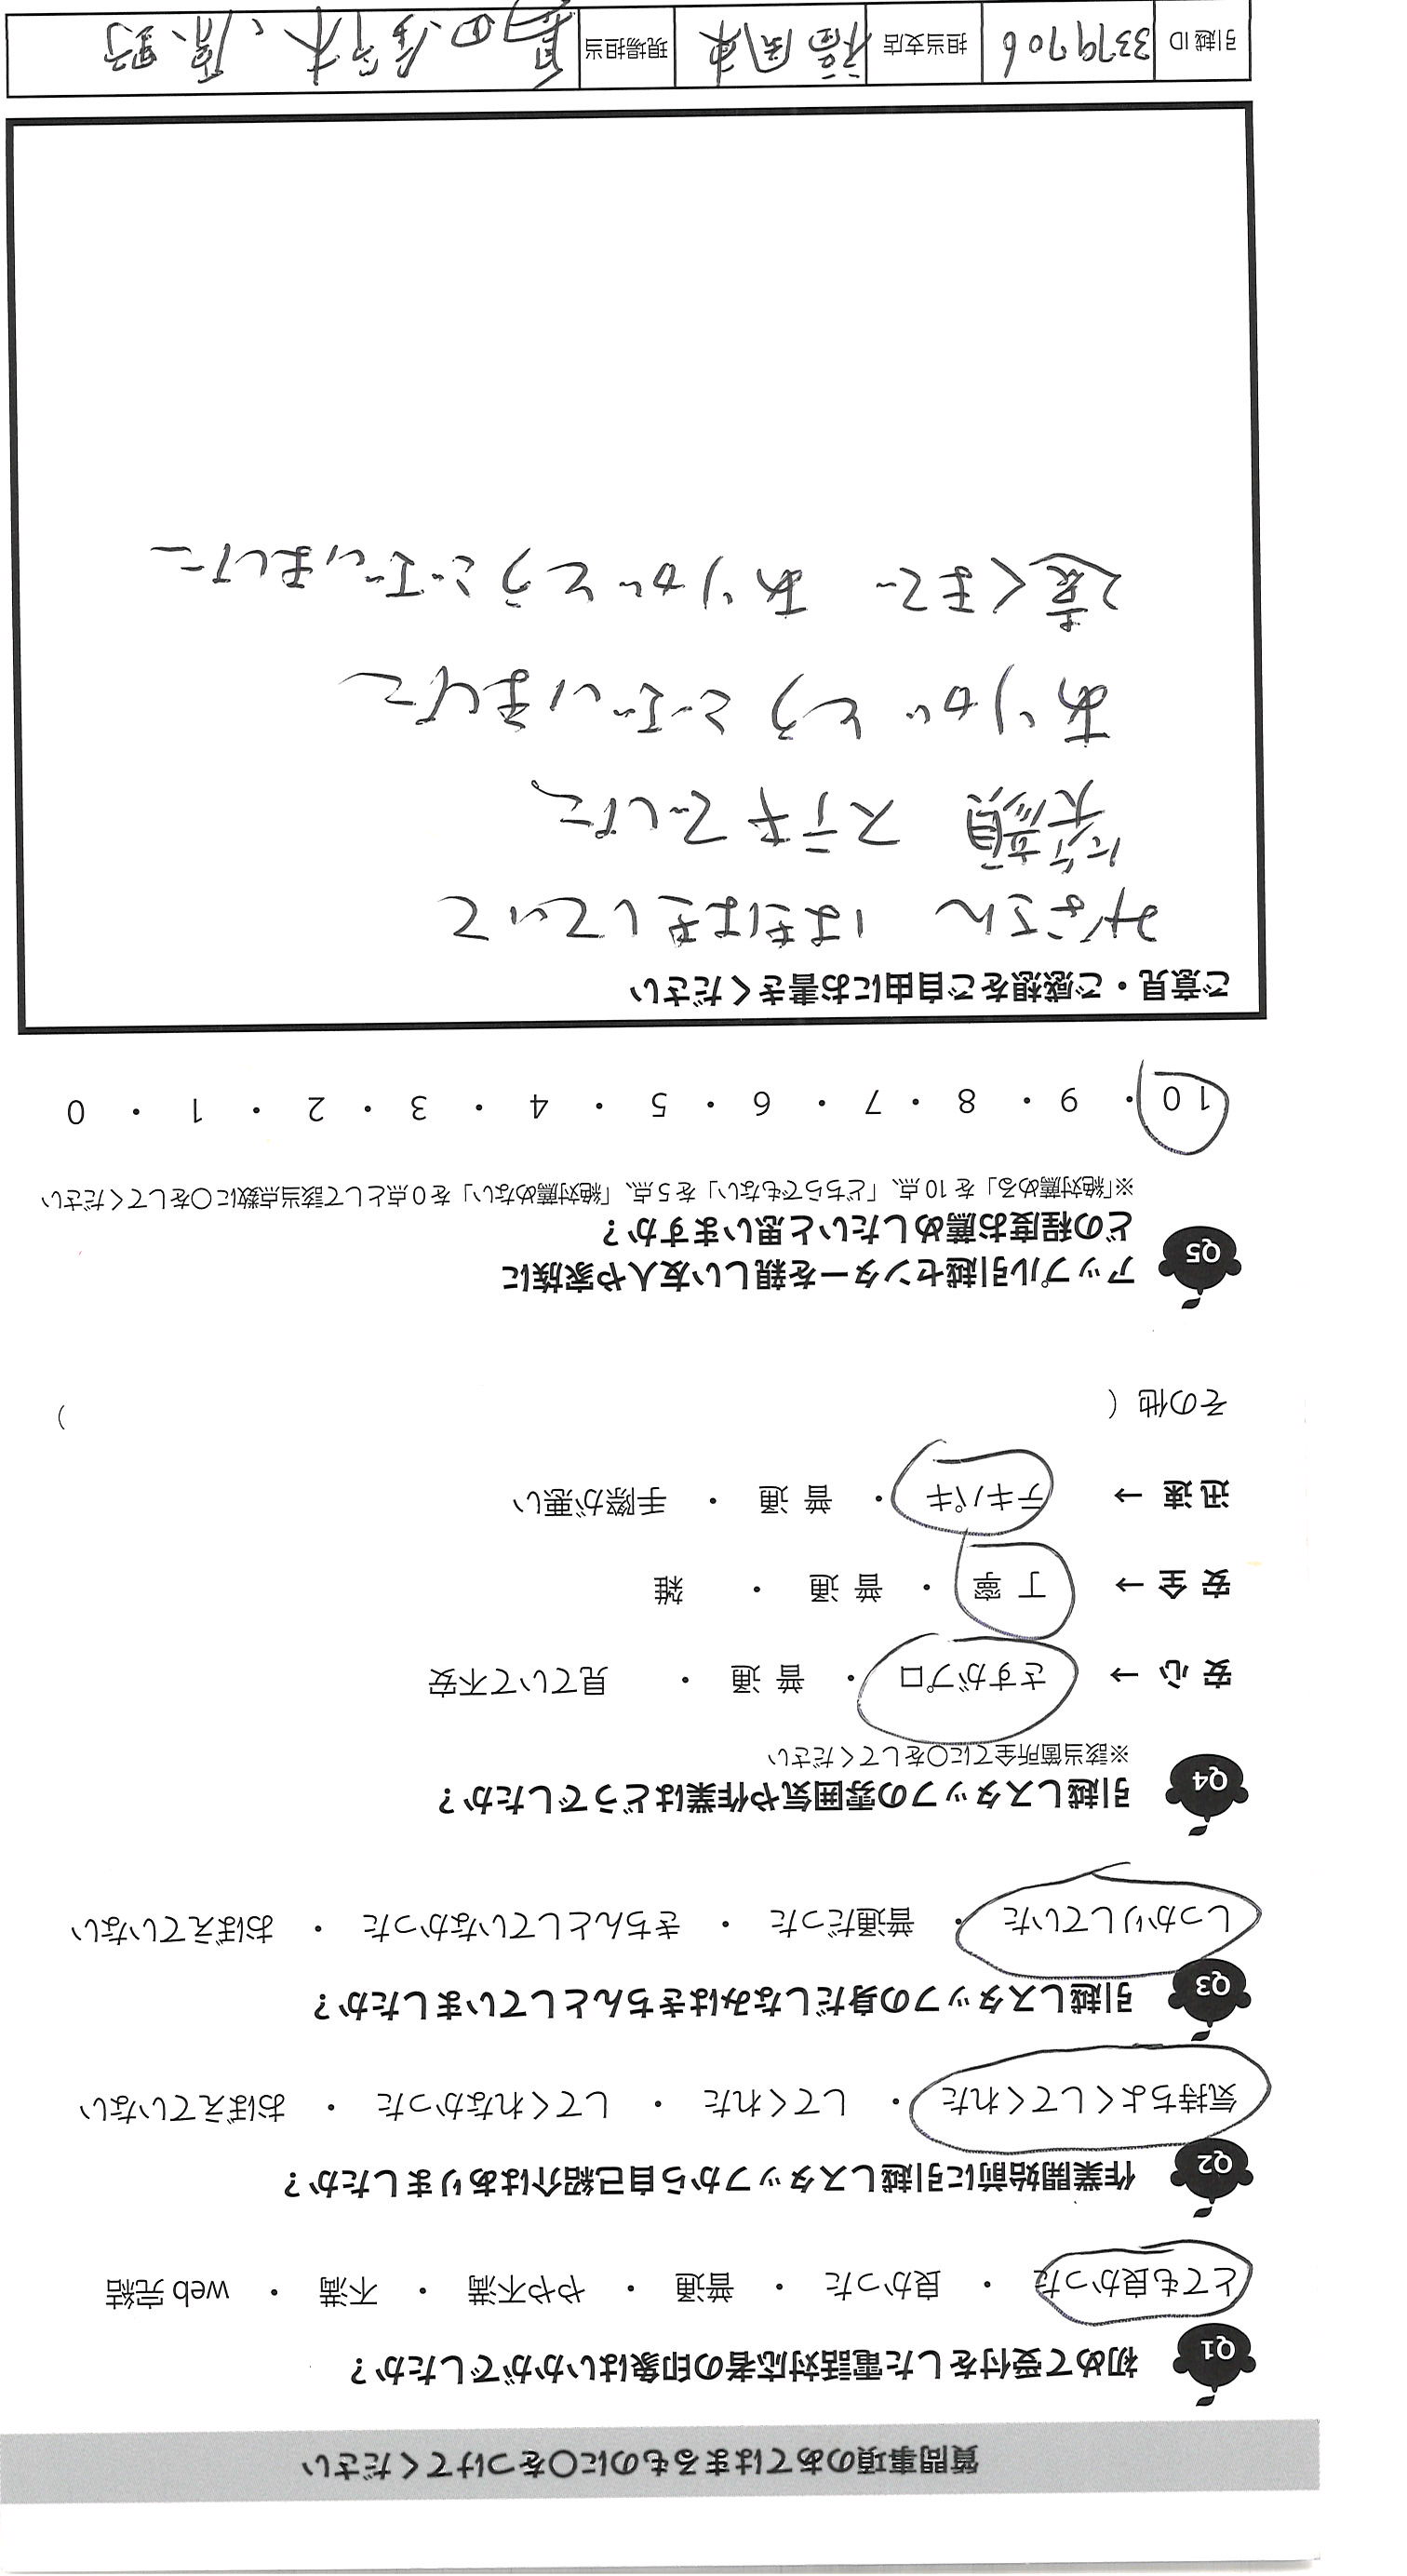 質問事項のあてはまるものに〇をつけてください
Q1 初めて受付をした電話対応者の印象はいかがでしたか？
とても良かった ・ 良かった ・ 普通 ・ やや不満 ・ 不満 ・ web 完結
Q2 作業開始前に引越しスタッフから自己紹介はありましたか？
気持ちよくしてくれた ・ してくれた ・ してくれなかった ・ おぼえていない
Q3 引越しスタッフの身だしなみはきちんとしていましたか？
しっかりしていた ・ 普通だった ・ きちんとしていなかった ・ おぼえていない
Q4 引越しスタッフの雰囲気や作業はどうでしたか？
※該当箇所全てに〇をしてください
安 心 → さすがプロ ・ 普 通 ・ 見ていて不安
安 全 → 丁 寧 ・ 普 通 ・ 雑
迅 速 → テキパキ ・ 普 通 ・ 手際が悪い
その他（ ）
Q5 アップル引越センターを親しい友人や家族に
どの程度お薦めしたいと思いますか？
※「絶対薦める」を 10 点、「どちらでもない」を 5 点、「絶対薦めない」を 0 点として該当点数に〇をしてください
10 ・ 9 ・ 8 ・ 7 ・ 6 ・ 5 ・ 4 ・ 3 ・ 2 ・ 1 ・ 0
ご意見・ご感想をご自由にお書きください
みなさん はきはきしていて
笑顔 ステキでした。
ありがとうございました
遠くまで ありがとうございました
引越 ID 3379706 担当支店 福岡東 現場担当 島田、佐々木、原野